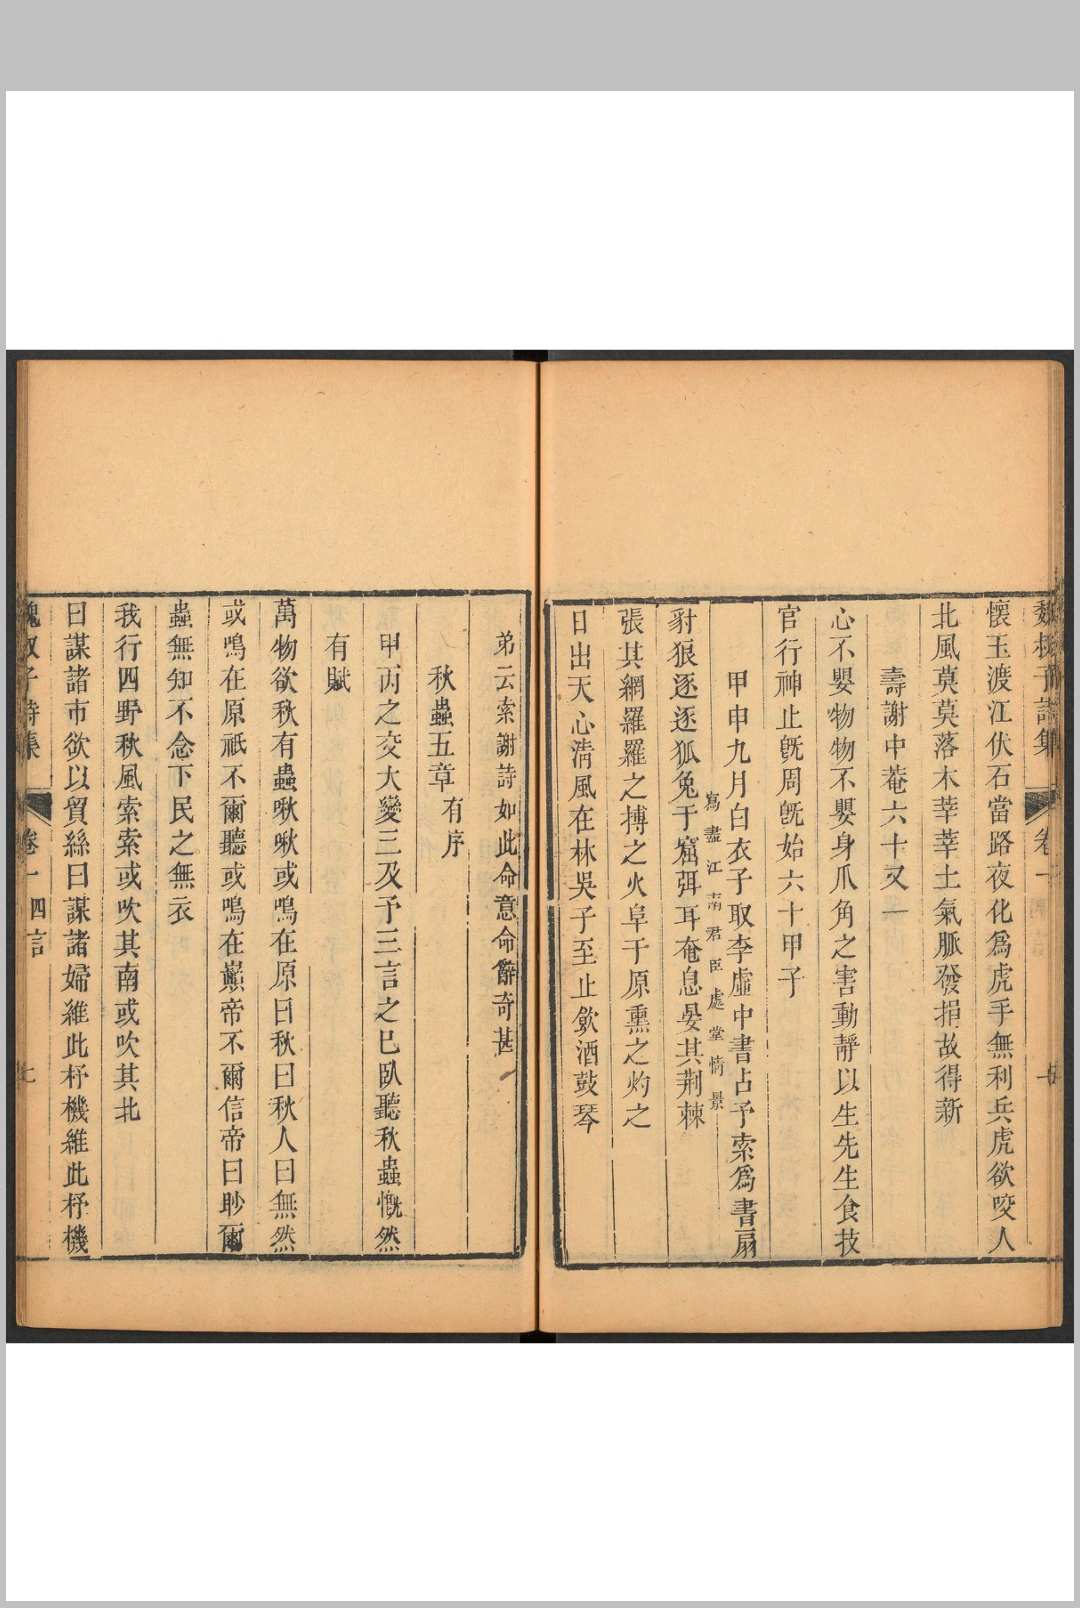 魏叔子詩集 卷一
懷玉渡江伏石當路夜化爲虎手無利兵虎欲咬人
北風莫莫落木莘莘土氣脈發捐故得新
壽謝中菴六十又一
心不嬰物物不嬰身爪角之害動靜以生先生食技
官行神止旣周旣始六十甲子
甲申九月白衣子取李虛中書占予索爲書扇
寫盡江南君臣處堂情景
豺狼逐逐狐兔于窟弭耳奄息晏其荆棘
張其網羅羅之搏之火阜于原熏之灼之
日出天心淸風在林吳子至止飮酒鼓琴
弟云索謝詩如此命意命辭奇甚
秋蟲五章有序
甲丙之交大變三及予三言之巳臥聽秋蟲慨然
有賦
萬物欲秋有蟲啾啾或鳴在原曰秋曰秋人曰無然
或鳴在原祇不爾聽或鳴在巔帝不爾信帝曰眇爾
蟲無知不念下民之無衣
我行四野秋風索索或吹其南或吹其北
曰謀諸市欲以貿絲曰謀諸婦維此杼機維此杼機
魏叔子詩集 卷一 四言 七